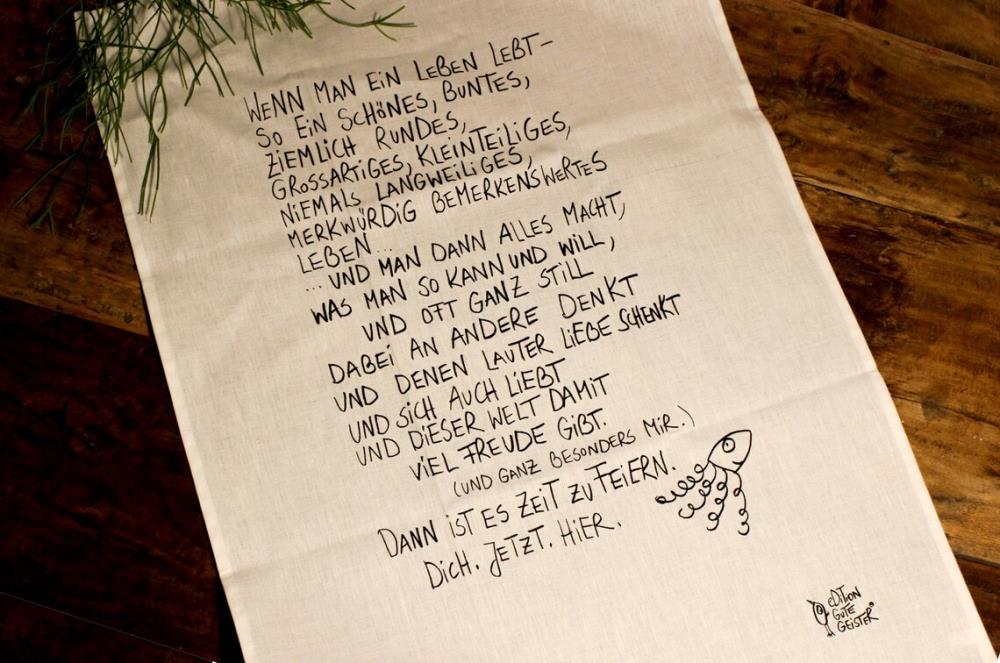 WENN MAN EiN LEBEN LEBT–
SO EiN SCHÖNES, BUNTES,
ZiEMLiCH RUNDES,
GROSSARTiGES, KLEiNTEiLiGES,
NiEMALS LANGWEiLiGES,
MERKWÜRDiG BEMERKENSWERTES
LEBEN...
...UND MAN DANN ALLES MACHT,
WAS MAN SO KANN UND WiLL,
UND OFT GANZ STiLL
DABEi AN ANDERE DENKT
UND DENEN LAUTER LiEBE SCHENKT
UND SiCH AUCH LiEBT
UND DiESER WELT DAMiT
ViEL FREUDE GiBT.
(UND GANZ BESONDERS MiR.)
DANN iST ES ZEiT ZU FEiERN.
DiCH. JETZT. HiER.
eDiTiON
GUTE
GEiSTER®